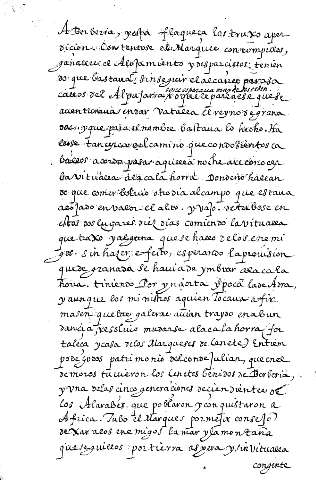 A Berberia, y esta flaqueza los truxo a per
dicion. Contentose el Marques con rompellos,
ganalles el Alojamiento y desparcillos: tenien
do que bastava, sin seguir el alcance para sa
callos del Alpujarra
aventurava en dar batalla el reyno de grana
da: y que para el nombre bastava lo hecho. Ha
llose tan cerca del camino que con dosientos ca
ballos acordo pasar aquella noche a reconocer
la vitualla a la calahorra. Donde no hallan
do que comer bolvio otro dia al campo que estava
alojado en valor el alto, y vajo. detubose en
estos dos lugares diez dias comiendo la vitualla
que traxo y alguna que se hallo de los ene mi
gos. sin hazer efeto, esperando la provision
que de granada se havia de ymbiar a la cala
horra. teniendo por yncierta y poca la de Adra,
y aunque los mi nistros a quien tocava afir
masen que las galeras avian traydo en abun
dancia resolvio mudarse a la calahorra for
taleza y casa de los Marqueses de Cenete) En tiem
po de godos patrimonio del conde Julian, que en el
de moros tuvieron los cenetes benidos de Berberia,
y una de las cinco generaciones decendientes de
los Alarabes que poblaron y conquistaron a
Africa. Tubo el Marques por mejor consejo
dexar a los ene migos la mar y la montaña
que seguillos por tierra aspera y sin vitualla
congente